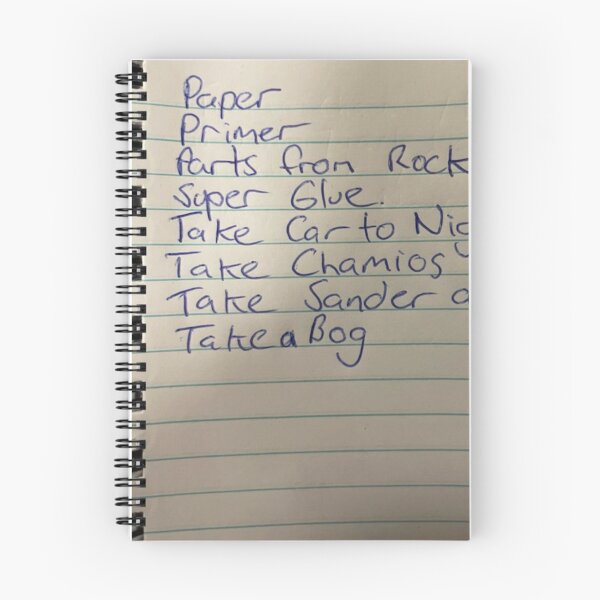 Paper
Primer
Parts from Rock
Super Glue.
Take Car to Nig
Take Chamios
Take Sander o
Take a Bog